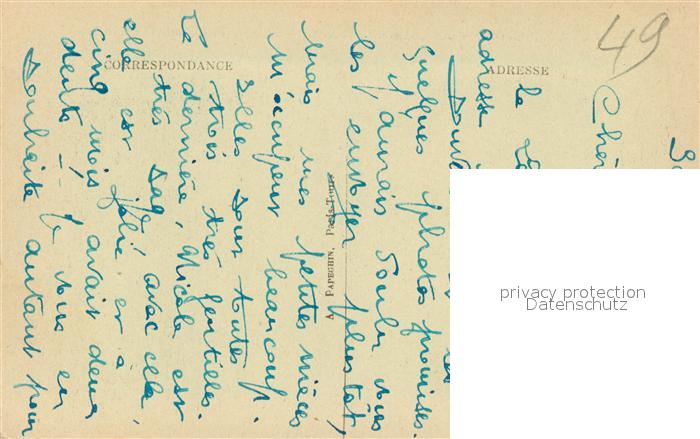 49
Chèr
la
adresse
Quelques photos promises.
J'aurais voulu vous
les envoyer plus tôt,
mais mes petites nièces
m'occupent beaucoup.
Elles sont toutes
trois très gentilles.
Le dernière, Nicole est
très sage, avec cela,
elle est jolie et à
cinq mois avait deux
dents. Je vous en
souhaite autant pour
CORRESPONDANCE
ADRESSE
A. PAPEGHIN, Paris-Tours
privacy protection
Datenschutz